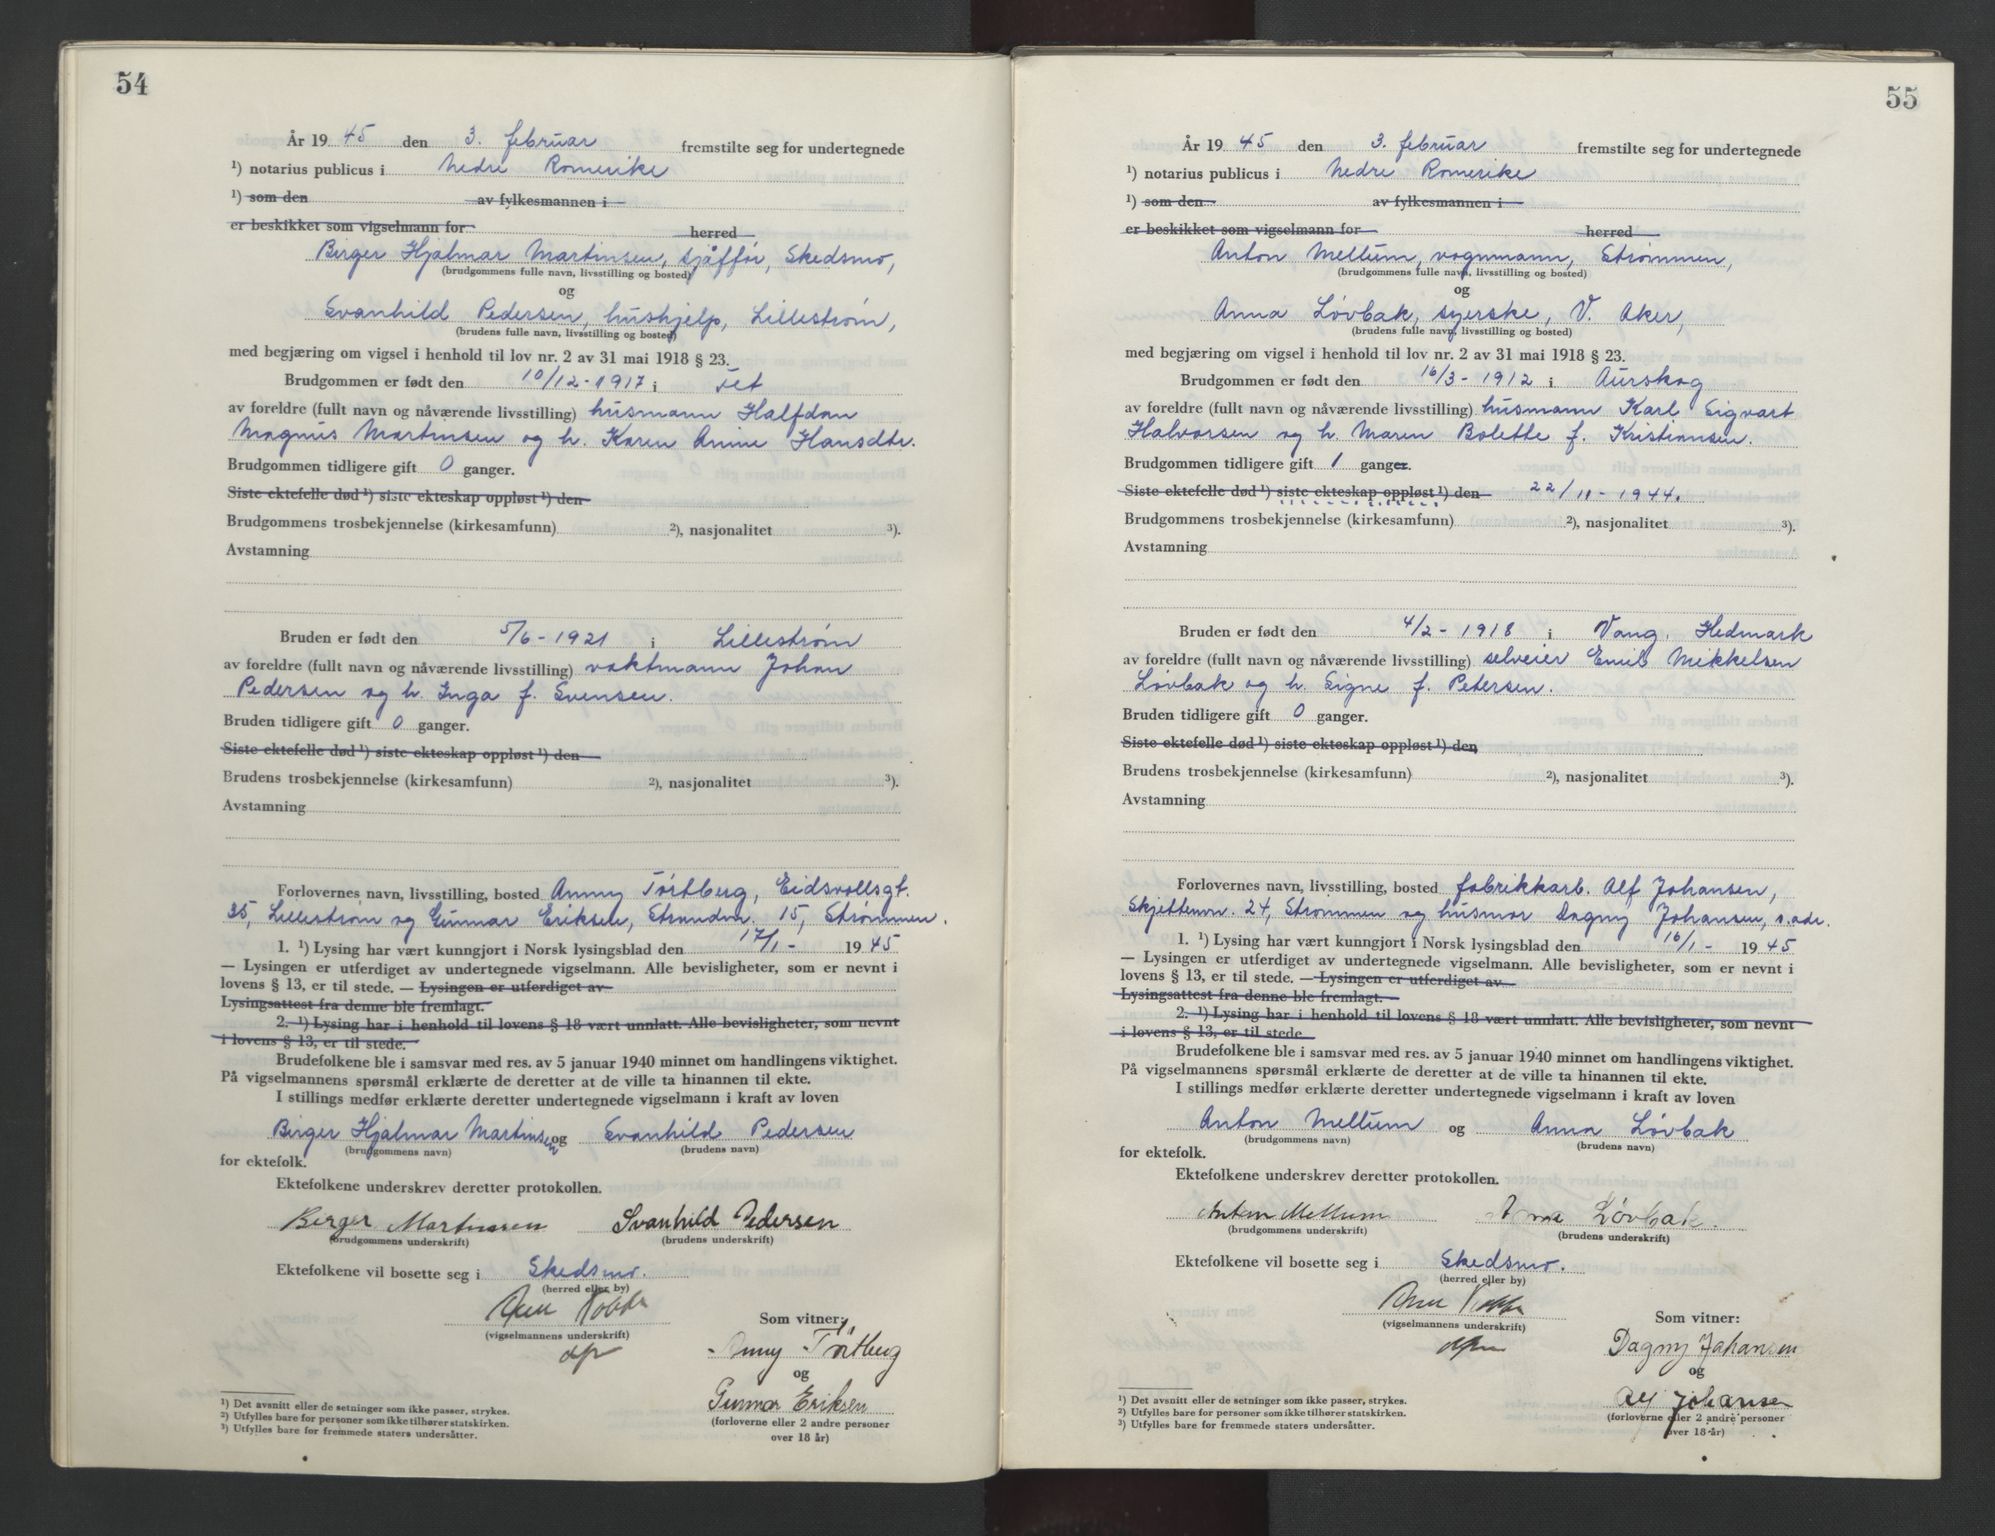 54
År 19 45 den 3. februar fremstilte seg for undertegnede
¹) notarius publicus i Nedre Romerike
¹) som den av fylkesmannen i
er beskikket som vigselmann for herred
Birger Hjalmar Martinsen, sjåffør, Skedsmo,
(brudgommens fulle navn, livsstilling og bosted)
og
Svanhild Pedersen, hushjelp, Lillestrøm,
(brudens fulle navn, livsstilling og bosted)
med begjæring om vigsel i henhold til lov nr. 2 av 31 mai 1918 § 23.
Brudgommen er født den 10/12-1917 i Fet
av foreldre (fullt navn og nåværende livsstilling) husmann Halfdan
Magnus Martinsen og h. Karen Anine Hansdtr.
Brudgommen tidligere gift 0 ganger.
Siste ektefelle død ¹) siste ekteskap oppløst ¹) den
Brudgommens trosbekjennelse (kirkesamfunn) ²), nasjonalitet ³).
Avstamning
Bruden er født den 5/6-1921 i Lillestrøm
av foreldre (fullt navn og nåværende livsstilling) vaktmann Johan
Pedersen og h. Inga f. Svensen.
Bruden tidligere gift 0 ganger.
Siste ektefelle død ¹) siste ekteskap oppløst ¹) den
Brudens trosbekjennelse (kirkesamfunn) ²), nasjonalitet ³).
Avstamning
Forlovernes navn, livsstilling, bosted Anny Törtberg, Eidsvollsgt.
35, Lillestrøm og Gunnar Eriksen, Strandvn. 15, Strømmen.
1. ¹) Lysing har vært kunngjort i Norsk lysingsblad den 17/1- 19 45
— Lysingen er utferdiget av undertegnede vigselmann. Alle bevisligheter, som er nevnt i
lovens § 13, er til stede. — Lysingen er utferdiget av
Lysingsattest fra denne ble fremlagt.
2. ¹) Lysing har i henhold til lovens § 18 vært unnlatt. Alle bevisligheter, som nevnt
i lovens § 13, er til stede.
Brudefolkene ble i samsvar med res. av 5 januar 1940 minnet om handlingens viktighet.
På vigselmannens spørsmål erklærte de deretter at de ville ta hinannen til ekte.
I stillings medfør erklærte deretter undertegnede vigselmann i kraft av loven
Birger Hjalmar Martinsen og Svanhild Pedersen
(brudgommens navn) (brudens navn)
for ektefolk.
Ektefolkene underskrev deretter protokollen.
Birger Martinsen Svanhild Pedersen
(brudgommens underskrift) (brudens underskrift)
Ektefolkene vil bosette seg i Skedsmo.
(herred eller by)
(vigselmannens underskrift)
Som vitner:
Anny Törtberg
og
Gunnar Eriksen
(forloverne eller 2 andre personer
over 18 år)
¹) Det avsnitt eller de setninger som ikke passer, strykes.
²) Utfylles bare for personer som ikke tilhører statskirken.
³) Utfylles bare for fremmede staters undersåtter.
55
År 19 45 den 3. februar fremstilte seg for undertegnede
¹) notarius publicus i Nedre Romerike
¹) som den av fylkesmannen i
er beskikket som vigselmann for herred
Anton Mellum, vognmann, Strømmen,
(brudgommens fulle navn, livsstilling og bosted)
og
Anna Løvbak, syerske, V. Aker,
(brudens fulle navn, livsstilling og bosted)
med begjæring om vigsel i henhold til lov nr. 2 av 31 mai 1918 § 23.
Brudgommen er født den 16/3-1912 i Aurskog
av foreldre (fullt navn og nåværende livsstilling) husmann Karl Sigvart
Halvorsen og h. Maren Bolette f. Kristiansen.
Brudgommen tidligere gift 1 ganger.
Siste ektefelle død ¹) siste ekteskap oppløst ¹) den 22/11-1944.
Brudgommens trosbekjennelse (kirkesamfunn) ²), nasjonalitet ³).
Avstamning
Bruden er født den 4/2-1918 i Vang, Hedmark
av foreldre (fullt navn og nåværende livsstilling) selveier Emil Mikkelsen
Løvbak og h. Signe f. Petersen.
Bruden tidligere gift 0 ganger.
Siste ektefelle død ¹) siste ekteskap oppløst ¹) den
Brudens trosbekjennelse (kirkesamfunn) ²), nasjonalitet ³).
Avstamning
Forlovernes navn, livsstilling, bosted fabrikkarb. Alf Johansen,
Skjettenvn. 24, Strømmen og husmor Dagny Johansen, s. adr.
1. ¹) Lysing har vært kunngjort i Norsk lysingsblad den 16/1- 19 45
— Lysingen er utferdiget av undertegnede vigselmann. Alle bevisligheter, som er nevnt i
lovens § 13, er til stede. — Lysingen er utferdiget av
Lysingsattest fra denne ble fremlagt.
2. ¹) Lysing har i henhold til lovens § 18 vært unnlatt. Alle bevisligheter, som nevnt
i lovens § 13, er til stede.
Brudefolkene ble i samsvar med res. av 5 januar 1940 minnet om handlingens viktighet.
På vigselmannens spørsmål erklærte de deretter at de ville ta hinannen til ekte.
I stillings medfør erklærte deretter undertegnede vigselmann i kraft av loven
Anton Mellum og Anna Løvbak
(brudgommens navn) (brudens navn)
for ektefolk.
Ektefolkene underskrev deretter protokollen.
Anton Mellum Anna Løvbak.
(brudgommens underskrift) (brudens underskrift)
Ektefolkene vil bosette seg i Skedsmo.
(herred eller by)
(vigselmannens underskrift)
Som vitner:
Dagny Johansen
og
Alf Johansen
(forloverne eller 2 andre personer
over 18 år)
¹) Det avsnitt eller de setninger som ikke passer, strykes.
²) Utfylles bare for personer som ikke tilhører statskirken.
³) Utfylles bare for fremmede staters undersåtter.